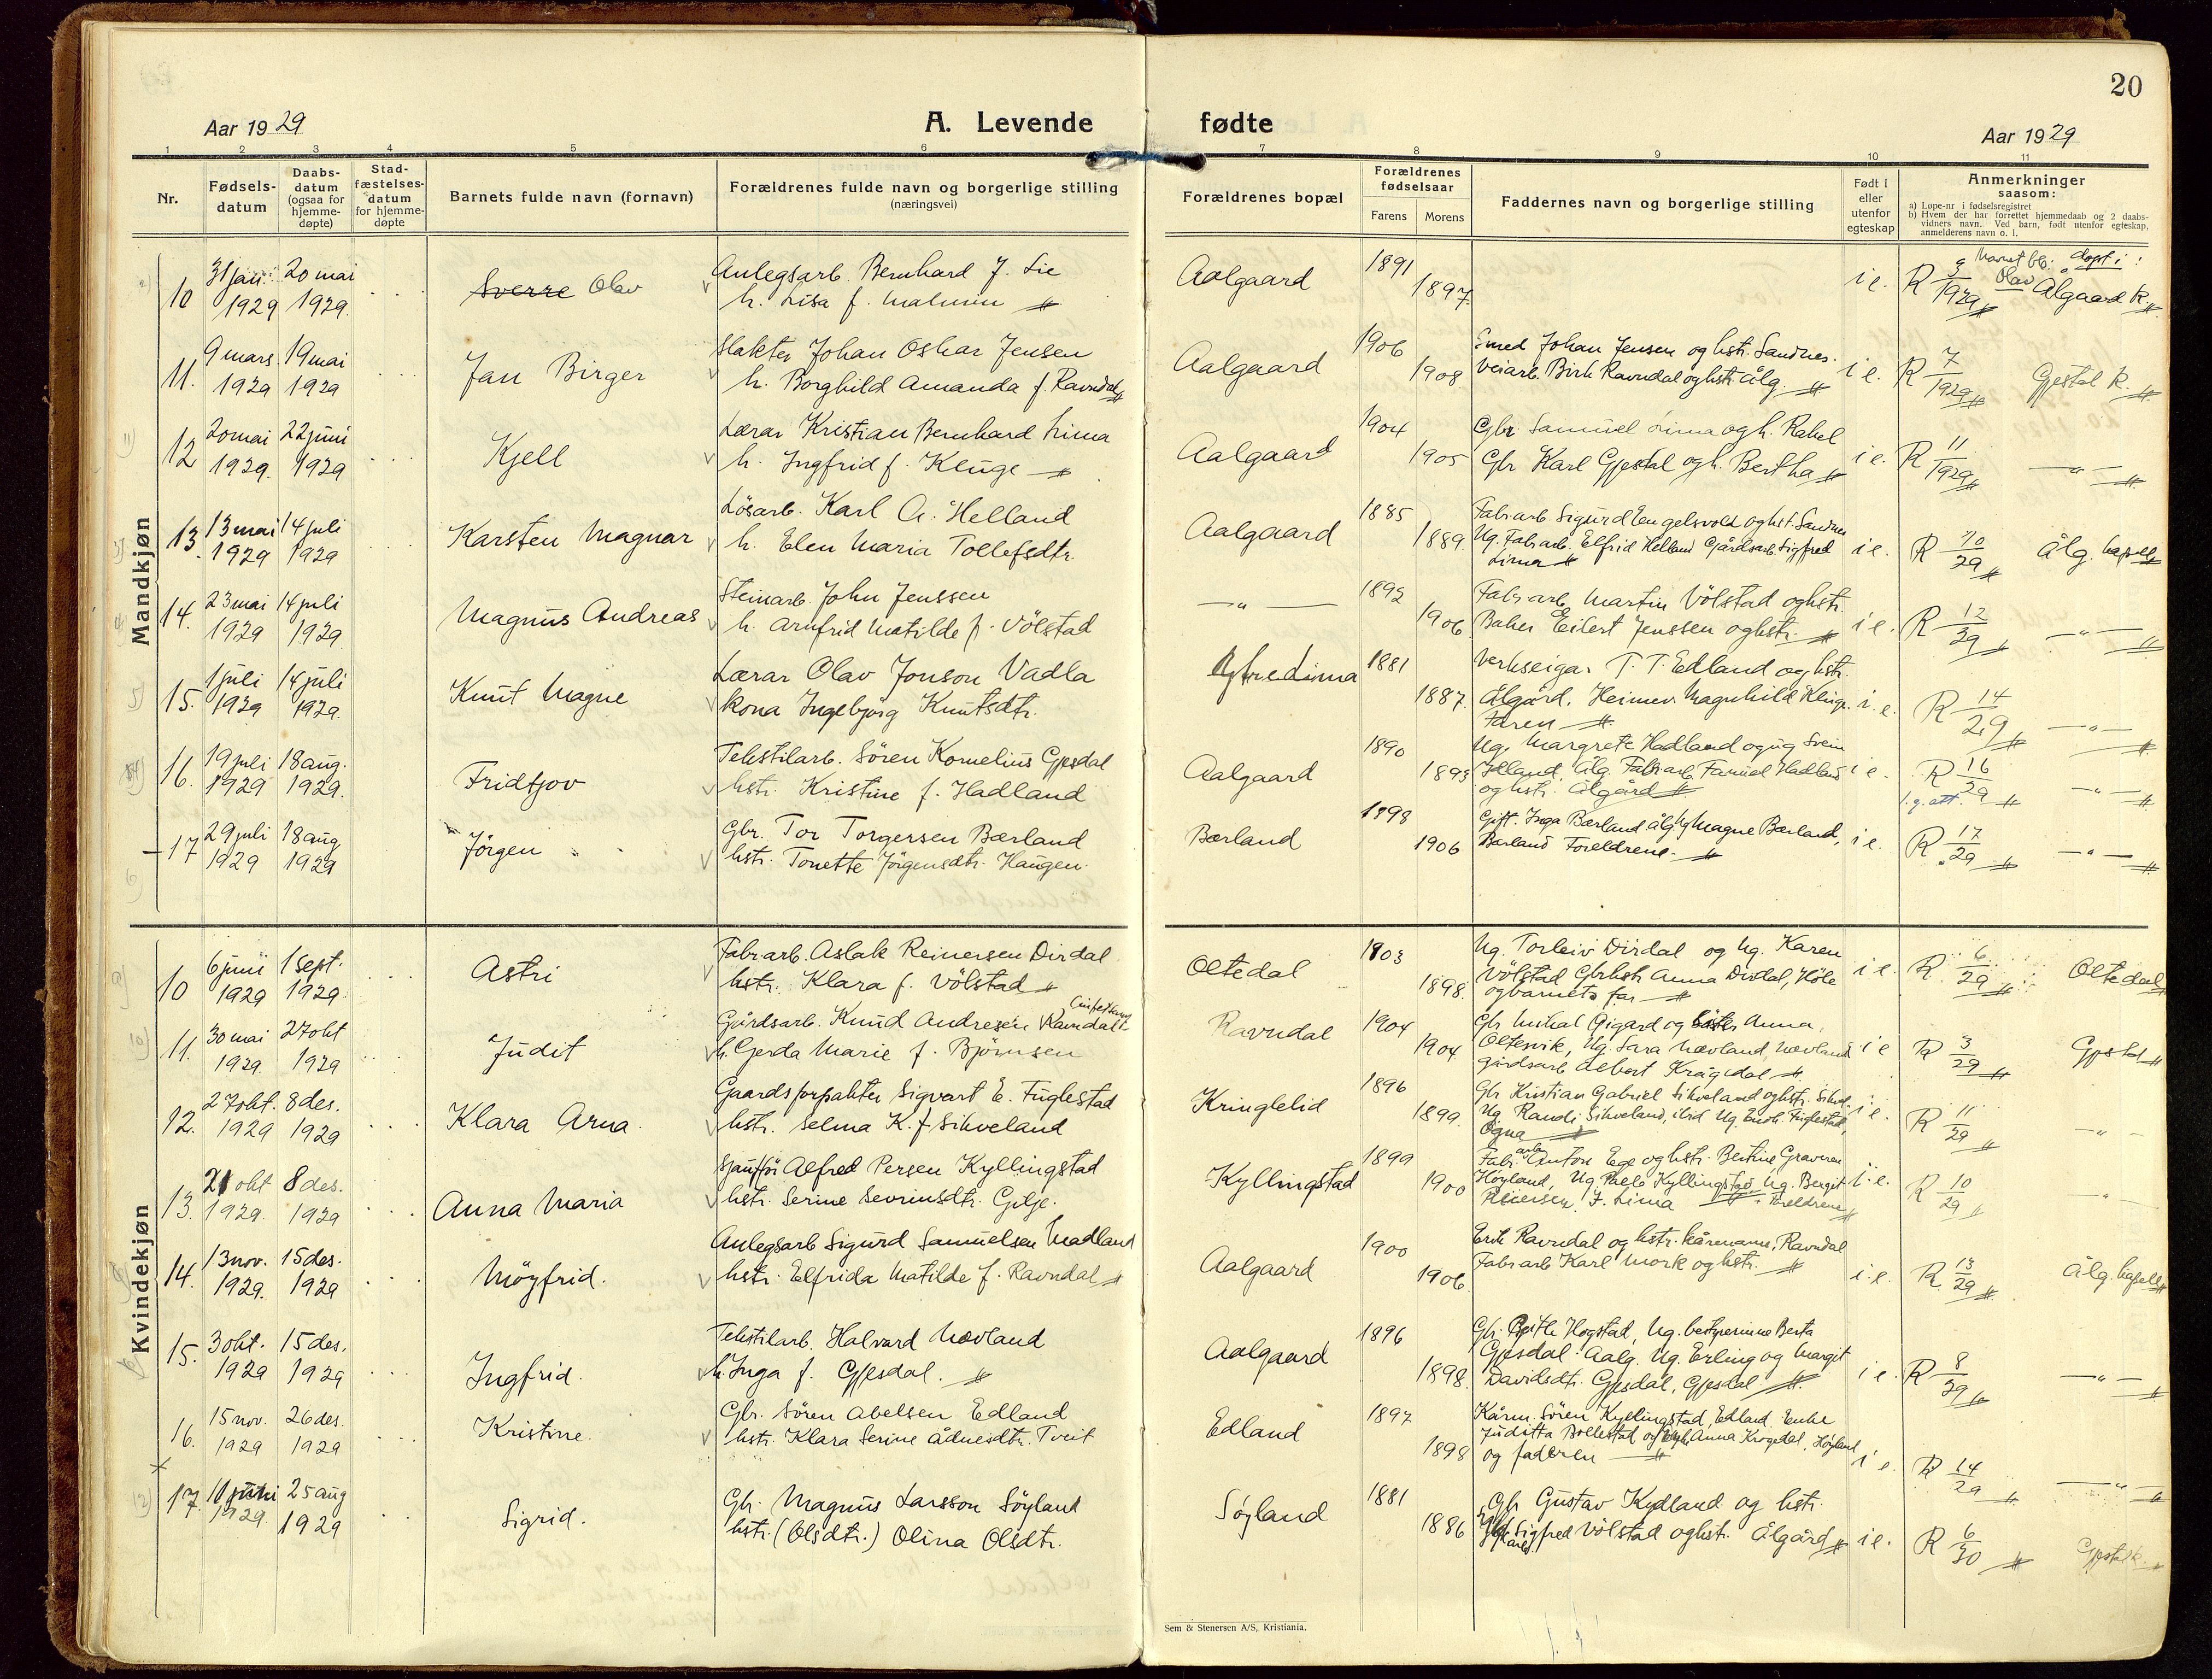 20
Aar 1929
A. Levende fødte
Aar 1929
1 2 3 4 5 6 7 8 9 10 11
Nr.
Fødsels-
datum
Daabs-
datum
(ogsaa for
hjemme-
døpte)
Stad-
fæstelses-
datum
for hjemme-
døpte
Barnets fulde navn (fornavn)
Forældrenes fulde navn og borgerlige stilling
(næringsvei)
Forældrenes bopæl
Forældrenes
fødselsaar
Farens Morens
Faddernes navn og borgerlige stilling
Født i
eller
utenfor
egteskap
Anmerkninger
saasom:
a) Løpe-nr i fødselsregistret
b) Hvem der har forrettet hjemmedaab og 2 daabs-
vidners navn. Ved barn, født utenfor egteskap,
anmelderens navn o. l.
Mandkjøn
10 31 jan. 1929 20 mai 1929. Sverre Olav
Anlegsarb. Bernhard J. Lie
h. Lisa f. Malmin
Aalgaard 1891 1897. i e. R 9/1929 døpt i Olav Ålgaard k.
11. 9 mars 1929 19 mai 1929 Jan Birger
Slakter Johan Oskar Jensen
h. Borghild Amanda f. Ravndal
Aalgaard 1906 1908
Smed Johan Jensen og hstr. Sandnes.
Veiarb. Birk Ravndal og hstr. Ålg.
i e. R 7/1929 Gjestal k.
12 20 mai 1929. 22 juni 1929 Kjell
Lærar Kristian Bernhard Lima
h. Ingfrid f. Kluge
Aalgaard 1904 1905
Gbr. Samuel Lima og h. Rakel
Gbr Karl Gjestal og h. Bertha
i e. R 11/1929 — " —
13. 13 mai 1929 14 juli 1929 Karsten Magnar
Lösarb. Karl A. Helland
h. Elen Maria Tollefsdtr.
Aalgaard 1885 1889.
Fabr arb Sigurd Engelsvold og hst. Sandnes
Ug. Fabr arb. Elfrid Helland Gjårdsarb Sigfred
Lima
i e. R 10/29 Ålg. kapell
14. 23 mai 1929 14 juli 1929 Magnus Andreas
Steinarb. John Jenssen
h. Arnfrid Matilde f. Völstad
— " — 1892 1906
Fabr arb Martin Völstad og hstr.
Baker Eilert Jenssen og hstr.
i e. R 12/29 — " —
15. 1 juli 1929 14 juli 1929. Knut Magne
Lærar Olav Jonson Vadla
kona Ingebjørg Knutsdtr.
1881 1887.
Verkseigar T. T. Edland og hstr.
Ålgård, Heimev. Magnhild Kluge.
Faren
i e. R 14/29 — " —
16. 19 juli 1929 18 aug. 1929. Fridtjov
Tekstilarb. Sören Kornelius Gjesdal
hstr. Kristine f. Hadland
Aalgaard 1890 1893
Ug. Margrete Hadland og ug Svein
Ålg. Fabr arb Hadland
og hstr. Ålgård
i e. R 16/29 — " —
17 29 juli 1929 18 aug 1929 Jörgen
Gbr. Tor Torgersen Bærland
hstr. Tonette Jörgensdtr. Haugen.
Bærland 1898 1906
Gift. Inga Bærland Ålg. Ug Magne Bærland,
Bærland Foreldrene.
i e. R 17/29 — " —
Kvindekjøn
10 6 juni 1929 1 sept. 1929. Astri
Fabr arb. Aslak Reinersen Dirdal
hstr. Klara f. Völstad
Oltedal 1903 1898.
Ug. Torleiv Dirdal og Ug. Karen
Völstad Gbrhstr Anna Dirdal, Höle
og barnets far
i e. R 6/29 Oltedal
11. 30 mai 1929. 27 okt 1929 Judit
Gårdsarb. Knud Andresen Ravndal
h. Gerda Marie f. Björnsen
Ravndal 1904 1904.
Gbr Mikal Gigard og Anna,
Oltesvik, Ug. Sara Nævland, Nævland
gårdsarb Albert Krågedal
i e R 3/29 Gjestal
12. 27 okt. 1929 8 des. 1929 Klara Arna.
Gaardsforpakter Sigvart E. Fuglestad
hstr. Selma K. f Sikveland
Kringlelid 1896 1899.
Gbr Kristian Gabriel Sikveland og hstr. Sikvel.
Ug Randi Sikveland, ibid Ug Endr. Fuglestad,
Ogna
i e. R 11/29 — " —
13. 21 okt 1929. 8 des. 1929 Anna Maria
Sjauffør Alfred Persen Kyllingstad
hstr. Serine Sevrinsdtr. Gilje.
Kyllingstad 1899 1900
Fabr arb Anton Ege og hstr. Bertine Graveren
Høyland, Ug. Kyllingstad Ug. Bergit
Pedersen, J. Lima Foreldrene
i e. R 10/29 "
14. 13 nov. 1929. 15 des. 1929 Möyfrid.
Anlegsarb Sigurd Samuelsen Madland
hstr. Elfrida Matilde f. Ravndal
Aalgaard 1900 1906.
Erik Ravndal og hstr. kårmann, Ravndal
Fabr arb Karl Mork og hstr.
i e. R 13/29 Ålg. kapell
15. 3 okt. 1929 15 des. 1929 Ingfrid.
Tekstilarb. Halvard Nævland
h. Inga f. Gjesdal.
Aalgaard 1896 1898.
Gbr. Hogstad, Ug. bestyrerinne Berta
Gjesdal Aalg. Ug. Erling og Margit
Davidsdtr. Gjesdal, Gjesdal
i e. R 8/29 — " —
16. 15 nov. 1929 26 des. 1929 Kristine.
Gbr. Sören Abelsen Edland
hstr. Klara Serine Ådnesdtr. Tveit
Edland 1897 1898
Kårm. Sören Kyllingstad, Edland. Enke
Juditta Bollestad og Anna Krogedal, Höyland
og faderen
i e. R 14/29 — " —
17. 11 juni 1929 25 aug 1929 Sigrid.
Gbr. Magnus Larsson Söyland
hstr. (Olsdtr.) Olina Olsdtr.
Söyland 1881 1886
Gbr Gustav Kydland og hstr.
Sigfred Völstad og hstr. Ålgård
i e. R 6/30 Gjestal k.
Sem & Stenersen A/S, Kristiania.